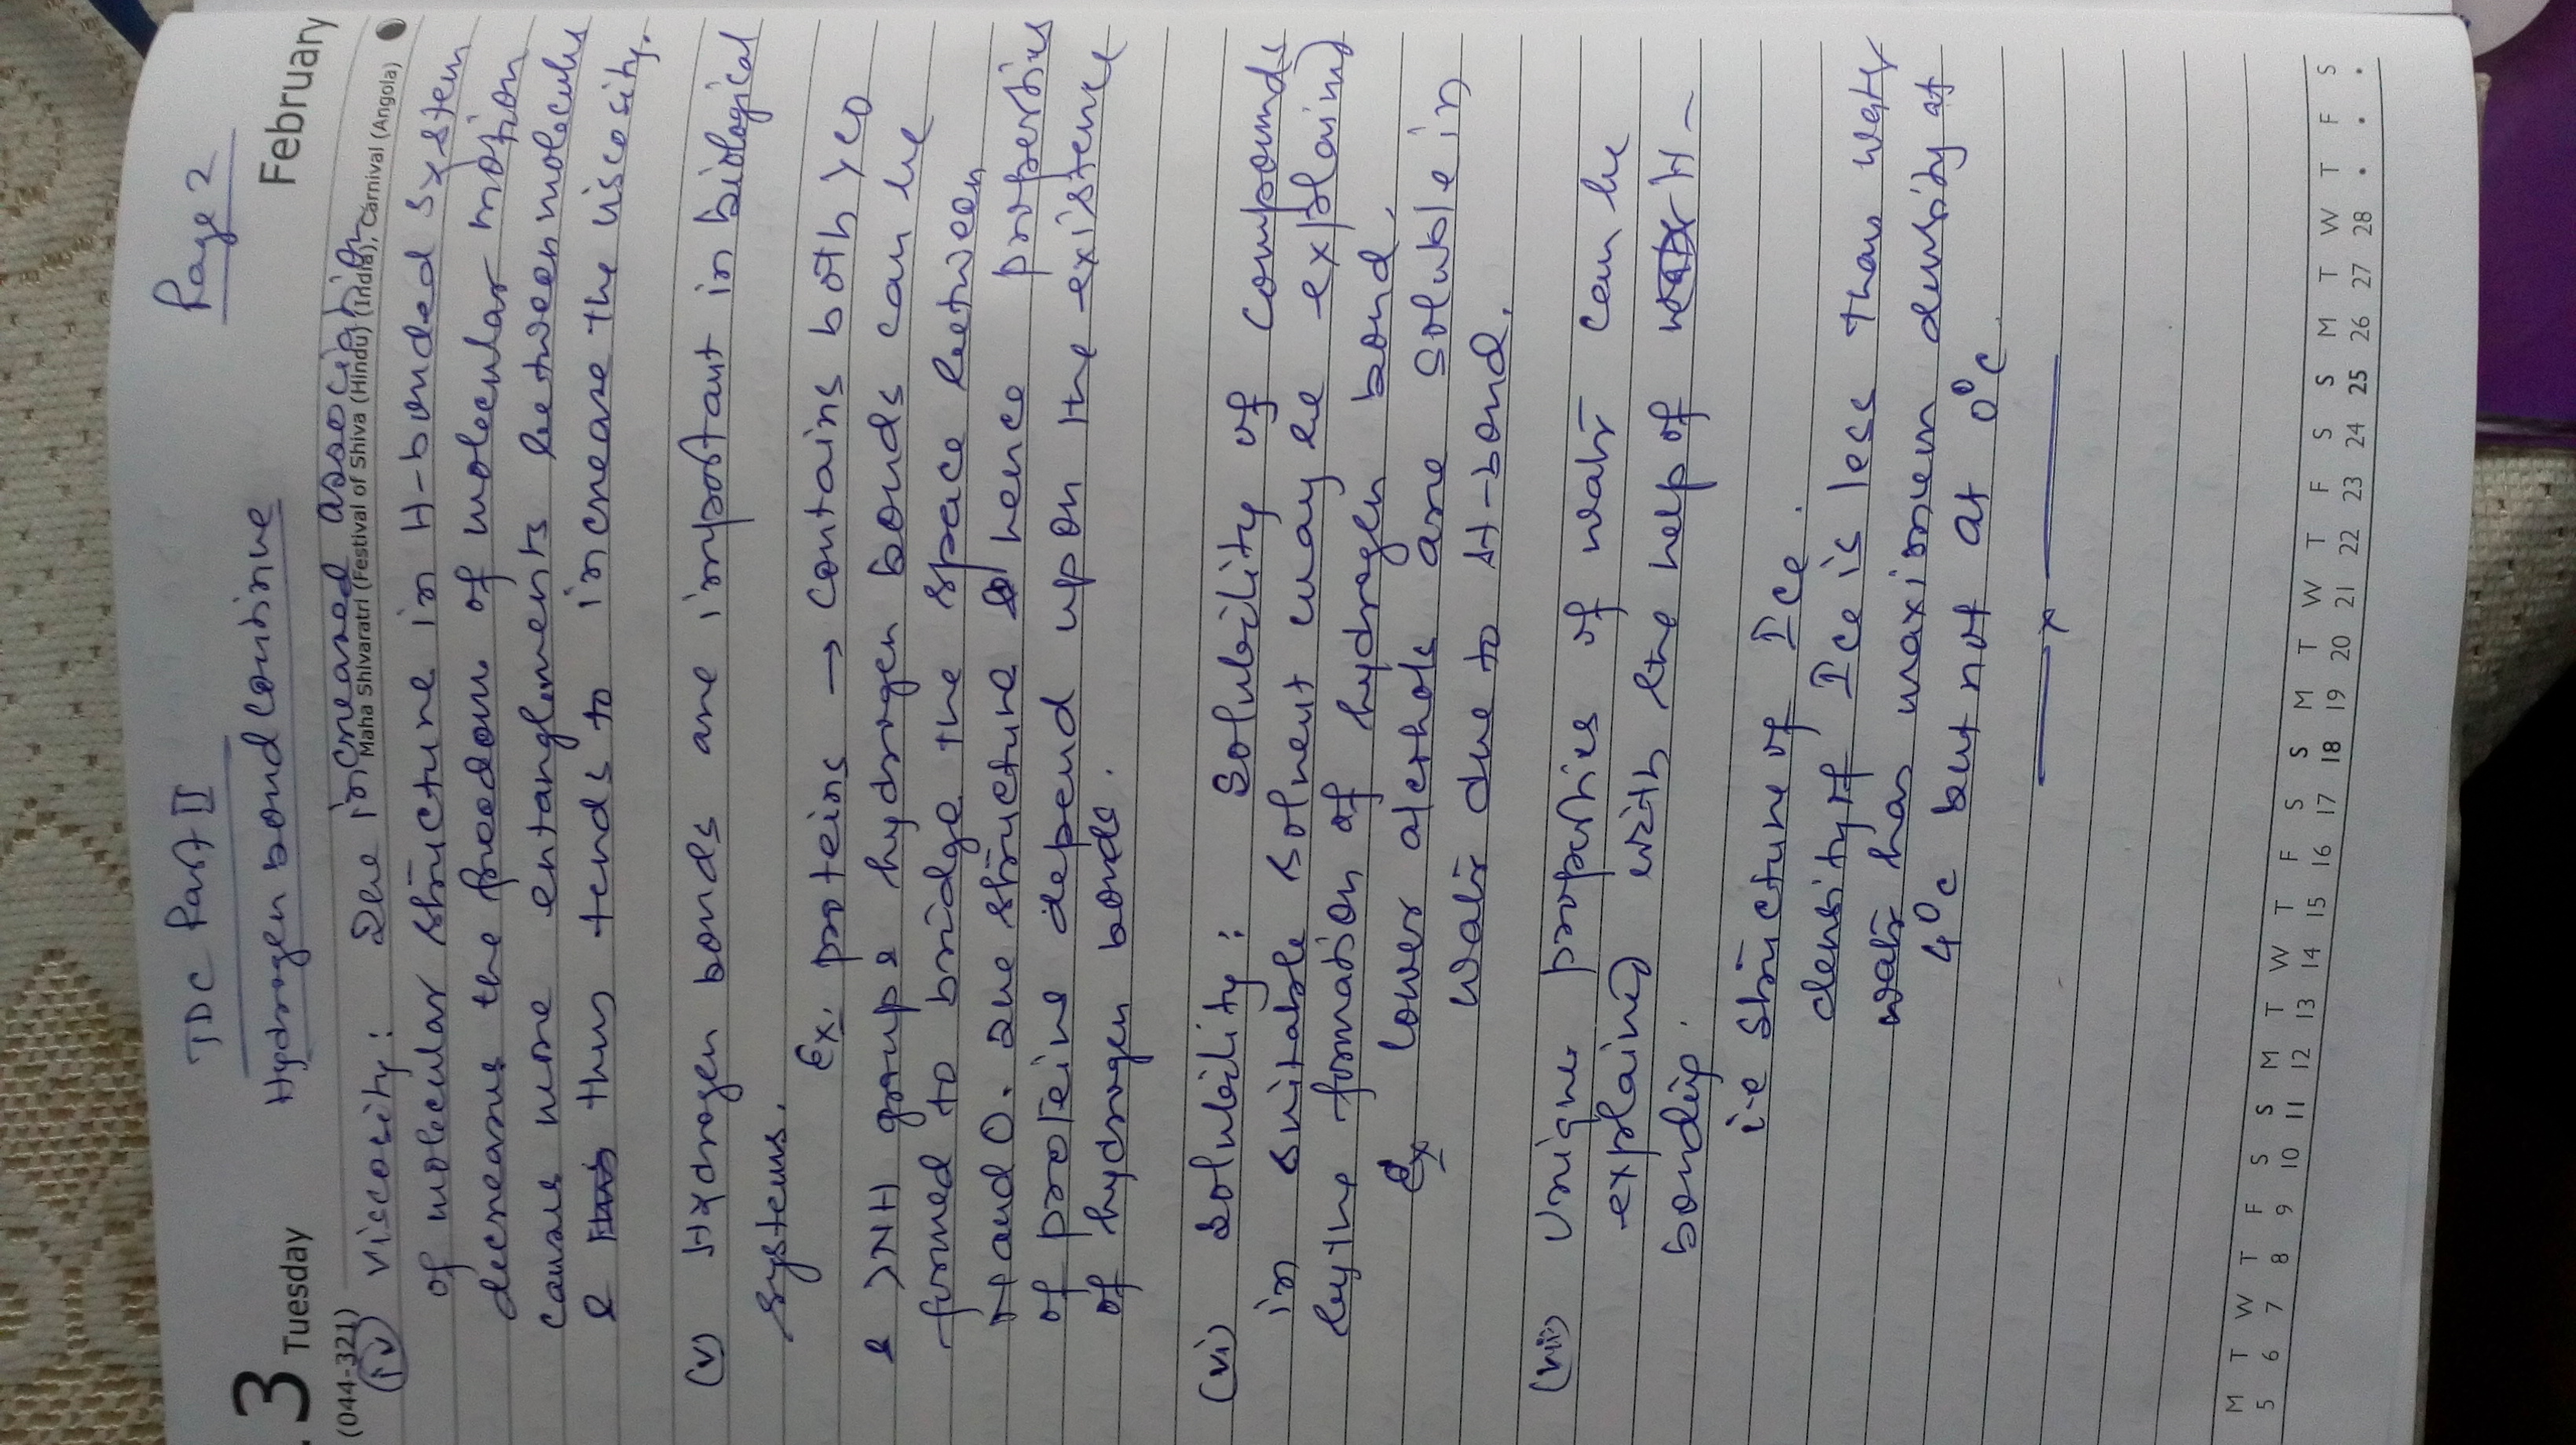 Page 2
TDC Part II
3 Tuesday
February
Hydrogen bond Continue
(044-321)
Maha Shivaratri (Festival of Shiva (Hindu) (India), Carnival (Angola)
(iv) Viscosity: Due increased association
of molecular structure in H-bonded system
decreases the freedom of molecular motion
causes more entanglements between molecules
& thus tends to increase the viscosity.
(v) Hydrogen bonds are important in biological
systems.
Ex. proteins → contains both >CO
& >NH groups hydrogen bonds can be
formed to bridge the space between
N and O. Due structure & hence properties
of proteins depend upon the existence
of hydrogen bonds.
(vi) Solubility: Solubility of compounds
in suitable solvent may be explained
by the formation of hydrogen bond.
Ex lower alcohols are soluble in
water due to H-bond.
(vii) Unique properties of water can be
explained with the help of H-
bonding.
i.e structure of Ice.
density of Ice is less than water
water has maximum density at
4°C but not at 0°C
x
M T W T F S S M T W T F S S M T W T F S S M T W T F S
5 6 7 8 9 10 11 12 13 14 15 16 17 18 19 20 21 22 23 24 25 26 27 28 . . .